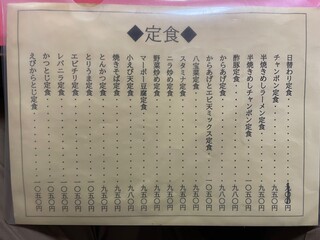 ◆定食◆
日替わり定食
チャンポン定食
半焼きめしラーメン定食 九五〇円
半焼きめしチャンポン定食 一〇五〇円
酢豚定食 九八〇円
からあげ定食 九八〇円
からあげとエビ天ミックス定食 一〇五〇円
八宝菜定食 九五〇円
スタミナ定食 九五〇円
ニラ炒め定食 九五〇円
野菜炒め定食 九五〇円
マーボー豆腐定食 九五〇円
小えび天定食 九八〇円
焼きそば定食 九五〇円
とんかつ定食 九五〇円
とりうま定食 一〇五〇円
エビチリ定食 一〇五〇円
レバニラ定食 九五〇円
かつとじ定食 一〇五〇円
えびからとじ定食 一〇五〇円